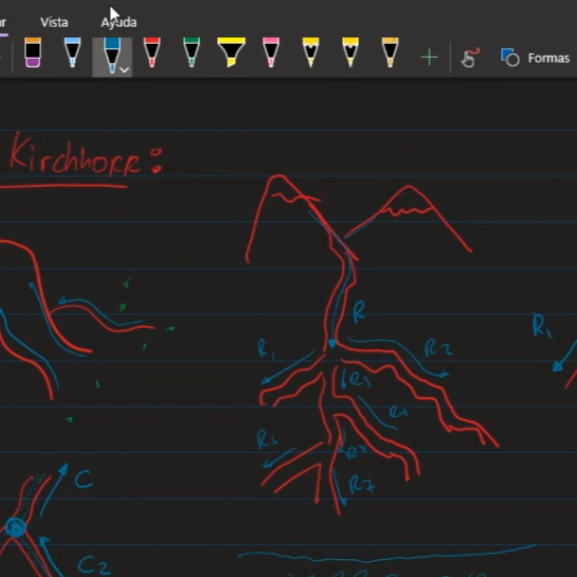 Vista Ayuda
Formas
Kirchhoff:
R
R1
R2
R1
R3
R4
R6
R7
C
C2